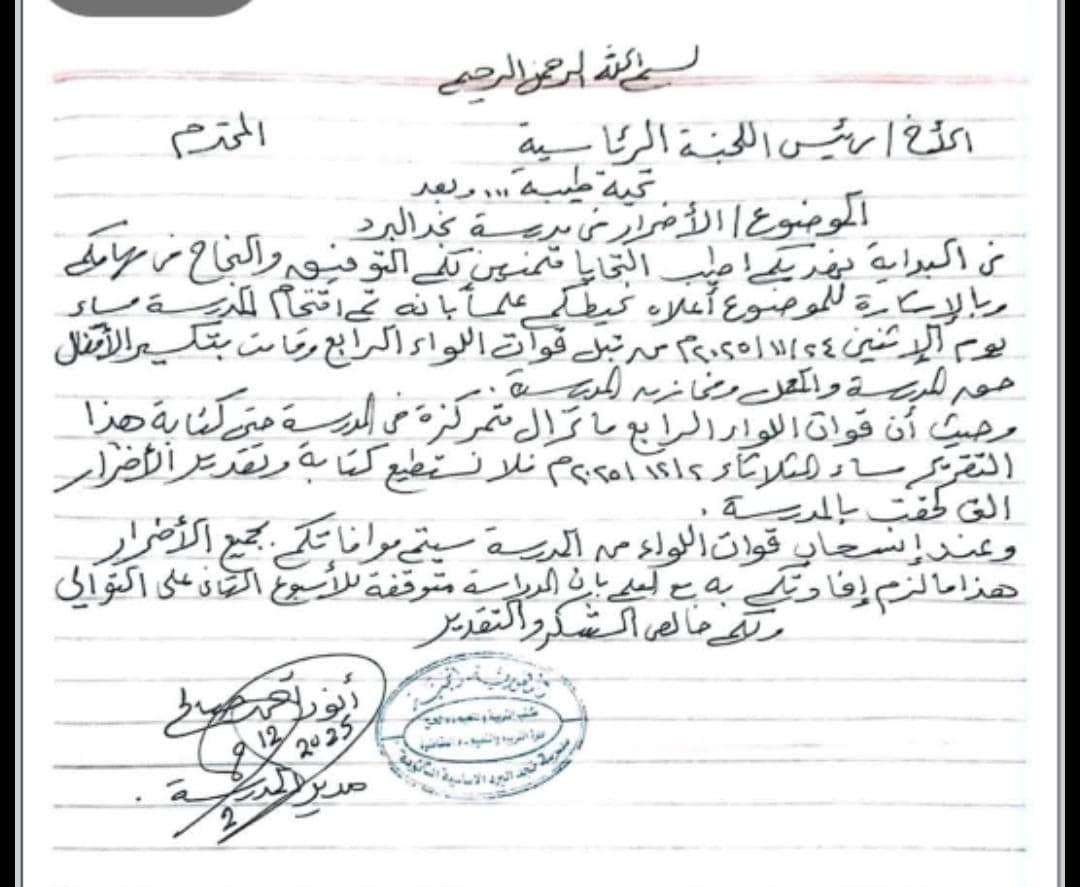 بسم الله الرحمن الرحيم
الأخ / رئيس اللجنة الرئاسية المحترم
تحية طيبة ... وبعد
الموضوع / الأضرار في مدرسة نجد البرد
في البداية نهديكم اطيب التحايا متمنين لكم التوفيق والنجاح في مهامكم
وبالإشارة للموضوع أعلاه نحيطكم علماً بانه تم اقتحام المدرسة مساء
يوم الإثنين ٢٠٢٥/١١/٢٤م من قبل قوات اللواء الرابع وقامت بتكسير الأقفال
المدرسة ومخازن المدرسة .
وحيث أن قوات اللواء الرابع ما تزال متمركزة في المدرسة حتى كتابة هذا
التقرير مساء الثلاثاء ٢٠٢٥/١٢/٢م فلا نستطيع كتابة وتقدير الأضرار
التي لحقت بالمدرسة .
وعند إنسحاب قوات اللواء من المدرسة سيتم موافاتكم بجميع الأضرار
هذا مالزم إفادتكم به مع العلم بان الدراسة متوقفة للأسبوع الثاني على التوالي
ولكم خالص الشكر والتقدير
أنور احمد صالح
12
2025
مدير المدرسة .
2
الجمهورية اليمنية
مكتب التربية والتعليم
مدرسة نجد البرد الاساسية الثانوية